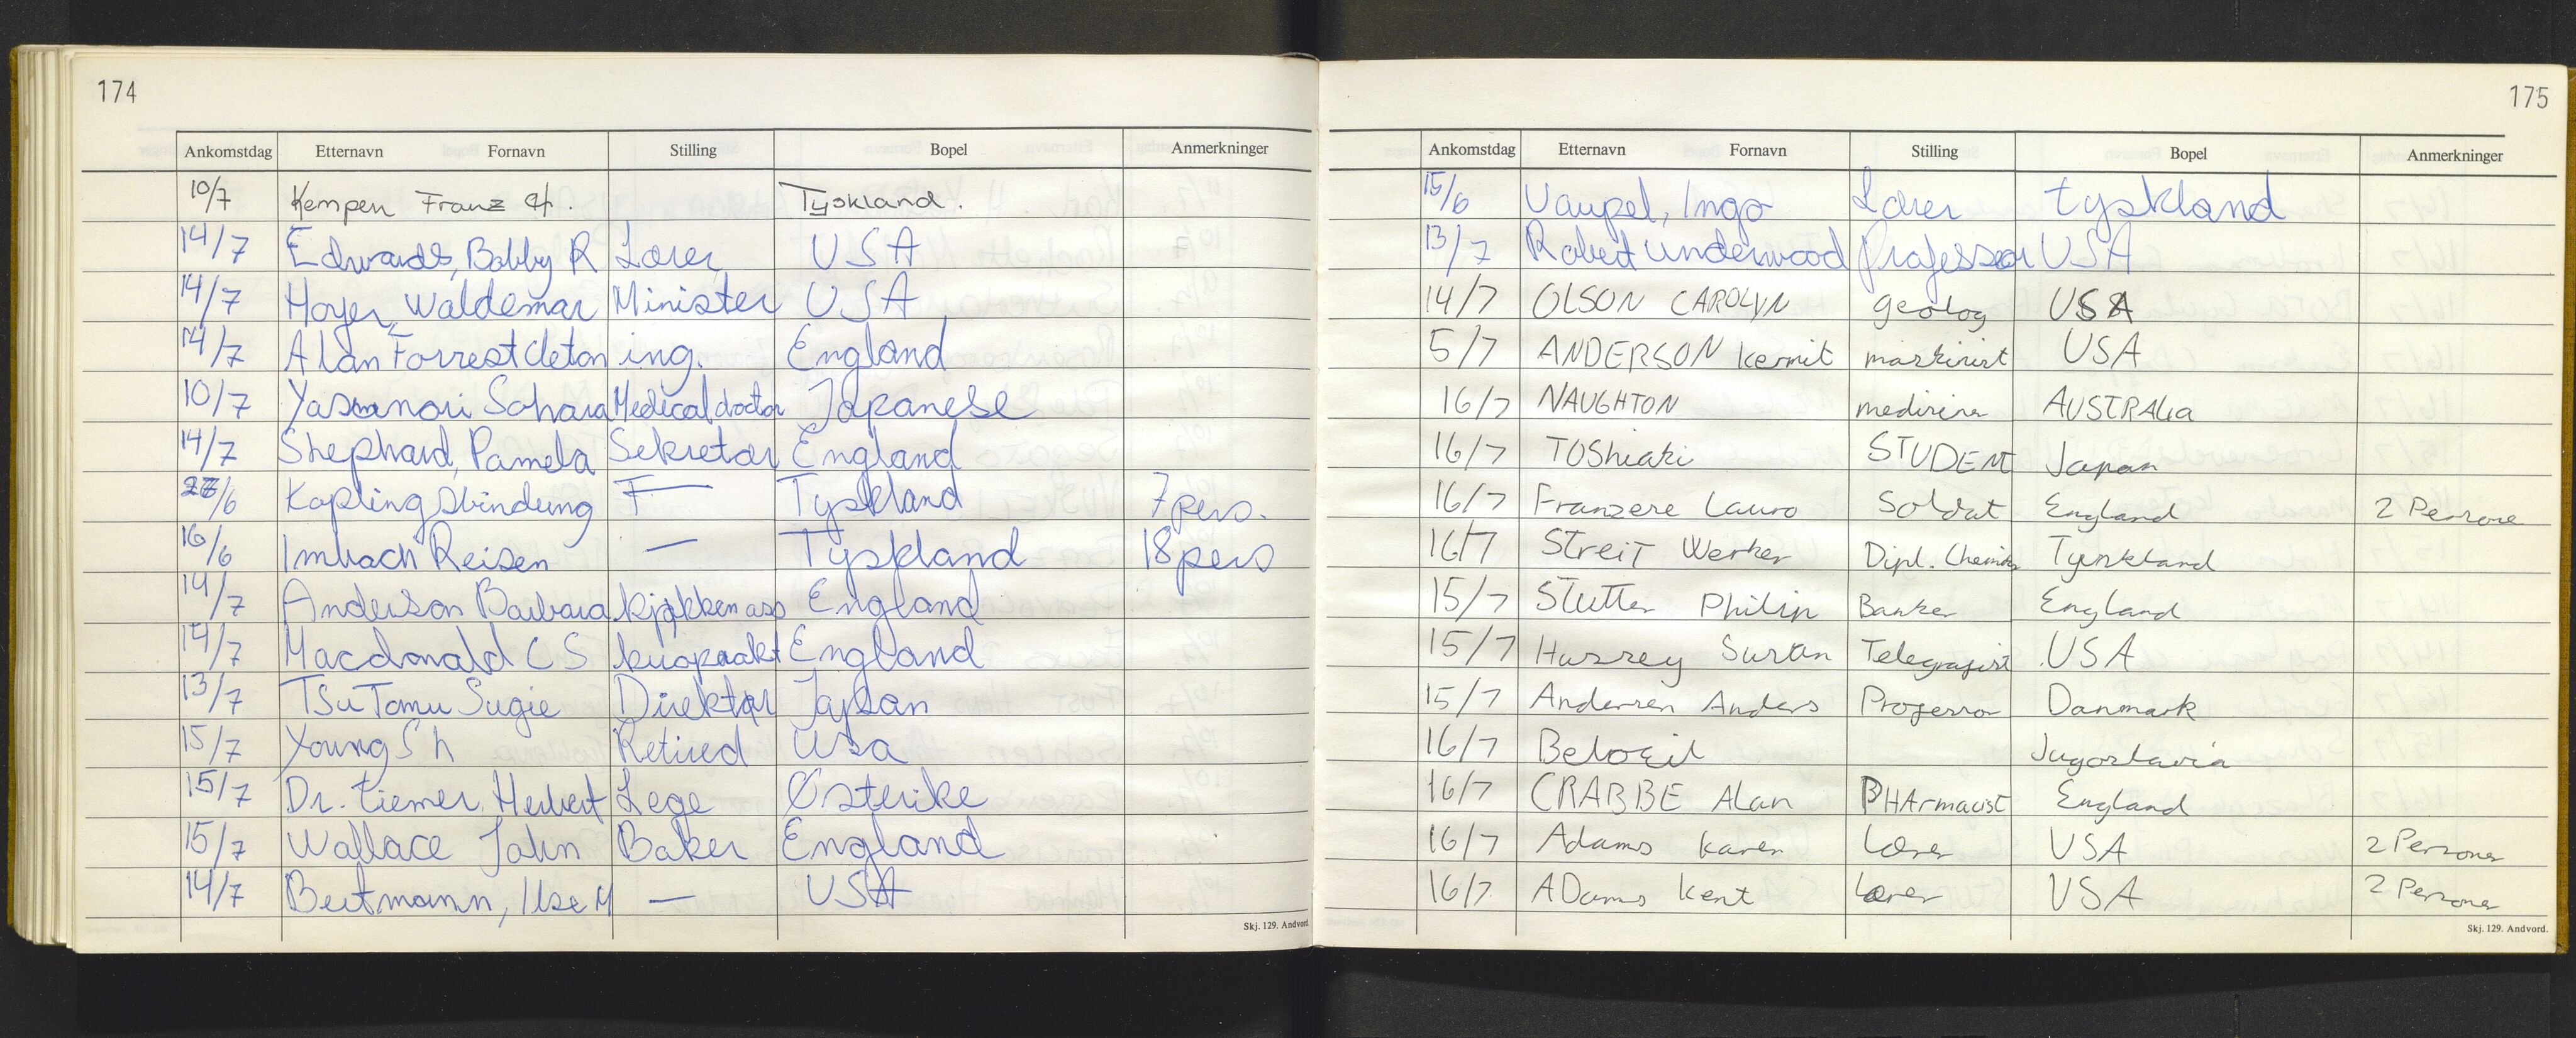 174
Ankomstdag Etternavn Fornavn Stilling Bopel Anmerkninger
10/7 Kempen Franz H. Tyskland.
14/7 Edwards, Bobby R Lærer USA
14/7 Hoyer, Waldemar Minister USA
14/7 Alan Forrest ing. England
10/7 Sahara Medical doctor Japanese
14/7 Shephard, Pamela Sekretær England
/6 Koplingsbindung Tyskland 7 pers.
16/6 Imbach Reisen — Tyskland 18 pers
14/7 Anderson Barbara kjøkken ass England
14/7 Macdonald C S England
13/7 TsuTomu Sugie Direktør Japan
15/7 Young S h Retired Usa
15/7 Dr. Ciemer, Herbert Lege Østerike
15/7 Wallace John Baker England
14/7 Beitmann, Ilse M — USA
Skj. 129. Andvord.
175
Ankomstdag Etternavn Fornavn Stilling Bopel Anmerkninger
15/6 Vaupel, Ingo Lærer tyskland
13/7 Robert Underwood Professor USA
14/7 OLSON CAROLYN geolog USA
5/7 ANDERSON Kermit maskinist USA
16/7 NAUGHTON AUSTRALia
16/7 TOShiaki STUDENT Japan
16/7 Franzere Lauro Soldat England 2 Persone
16/7 STreiT Werker Dipl. Chemiker Tyskland
15/7 STutter Philip Banker England
15/7 Hussey Susan Telegrafist USA
15/7 Andersen Anders Professor Danmark
16/7 Jugoslavia
16/7 CRABBE Alan PHArmacist England
16/7 Adams Karen Lærer USA 2 Personer
16/7 ADams Kent Lærer USA 2 Personer
Skj. 129. Andvord.